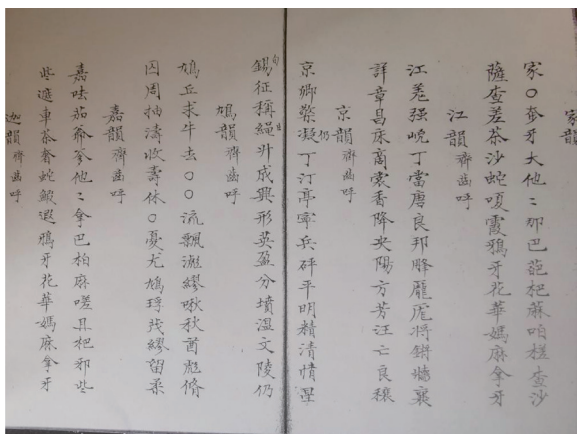 家韻
家○夲牙大他〻那巴葩杷蔴咱槎查沙
薩查差茶沙蛇嗄霞鴉牙花華媽麻拿牙
江韻齊齒呼
江羌强嶢丁當唐良邦胮龐尨将鏘墻襄
詳章昌床商裳香降央陽方芳汪亡良穰
京韻齊齒呼
京卿檠凝丁汀亭寕兵砰平明精清情星
錫征稱繩升成興形英盈分墳温文陵仍
鳩韻齊齒呼
鳩丘求牛丢○○流飄滮繆啾秋酋彪脩
囚周抽濤收壽休○憂尤鳩琈茂繆留柔
嘉韻齊齒呼
嘉呿茄爺爹他〻拿巴柏麻嗟且杷邪些
些遮車茶奢蛇鰕遐鴉牙花華媽麻拿牙
迦韻齊齒呼